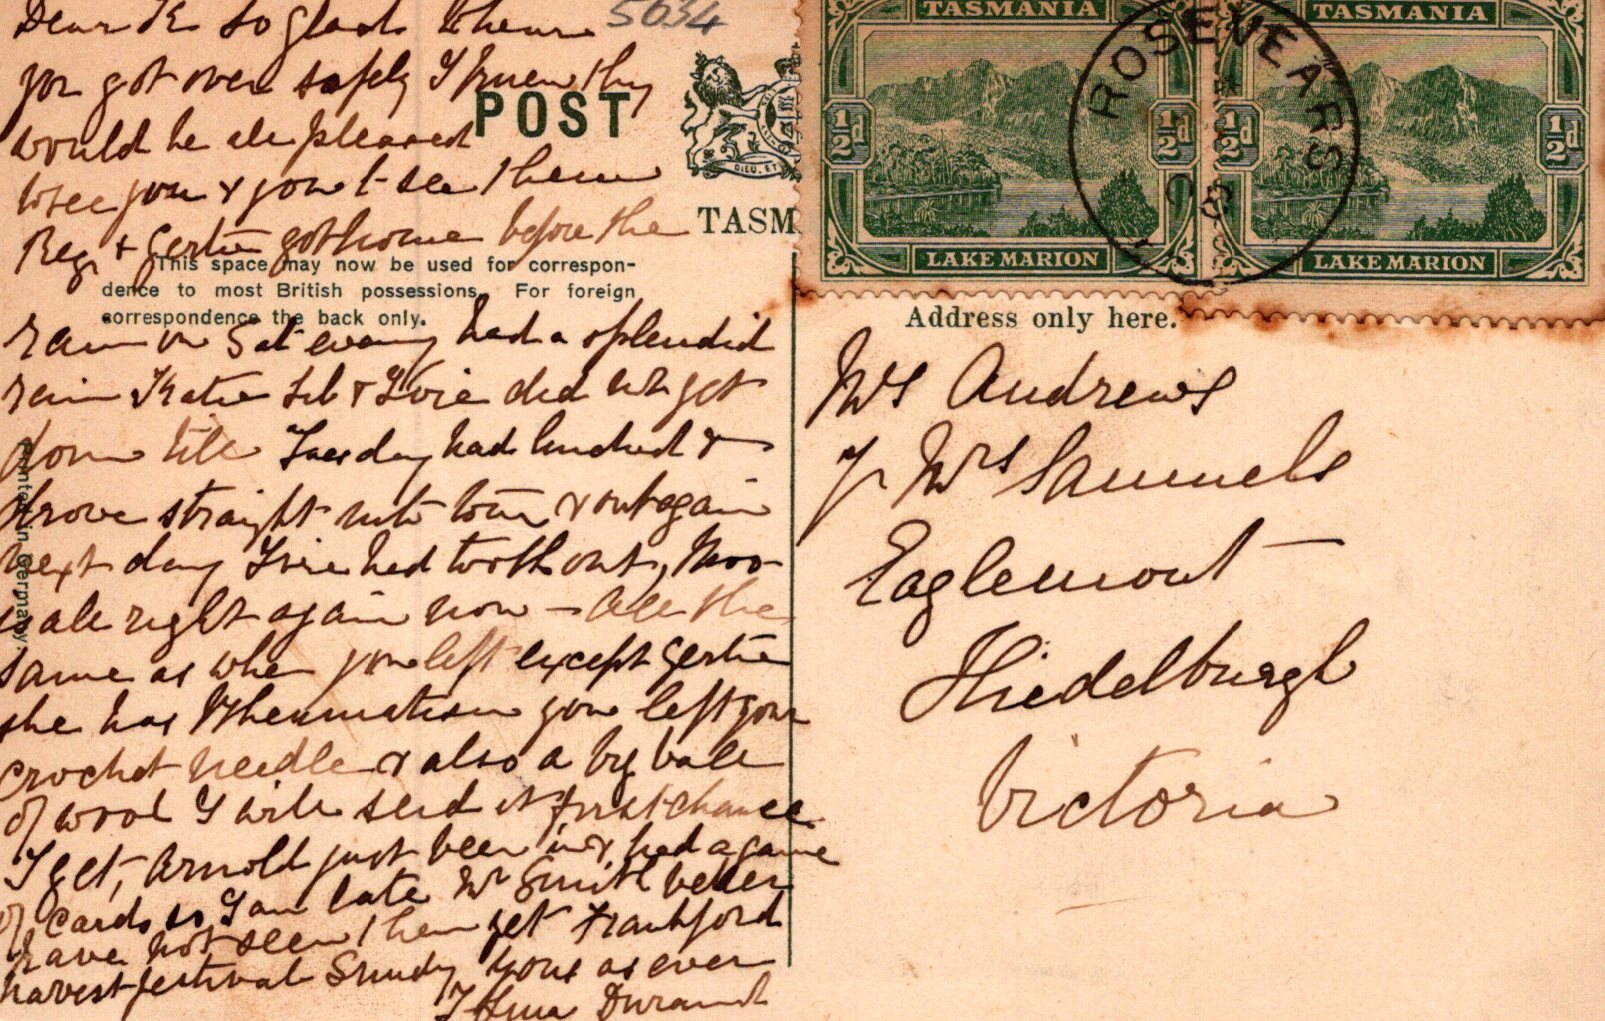 Dear K so glad to hear
you got over safely I knew they
would be all pleased
to see you & you to see them
Reg & Gertie got home before the
rain on Sat evening had a splendid
rain Katie Lil & Ivie did not get
down till Tuesday had lunched &
drove straight into town & out again
next day Ivie had tooth out,
is all right again now - all the
same as when you left except Gertie
she has Rheumatism you left your
crochet needle & also a big ball
of wool I will send it first chance
I get, Arnold just been in & had a game
of cards so I am late Mr Smith better
have not seen them yet Frankford
harvest festival Sunday yours as ever
Durant
5634
POST
DIEU ET
TASM
This space may now be used for correspon-
dence to most British possessions. For foreign
correspondence the back only.
Printed in Germany.
TASMANIA
½d ½d
LAKE MARION
TASMANIA
½d ½d
LAKE MARION
ROSEVEARS
08
Address only here.
Mrs Andrews
Mrs Samuels
Eaglemont
Hiedelburgh
Victoria